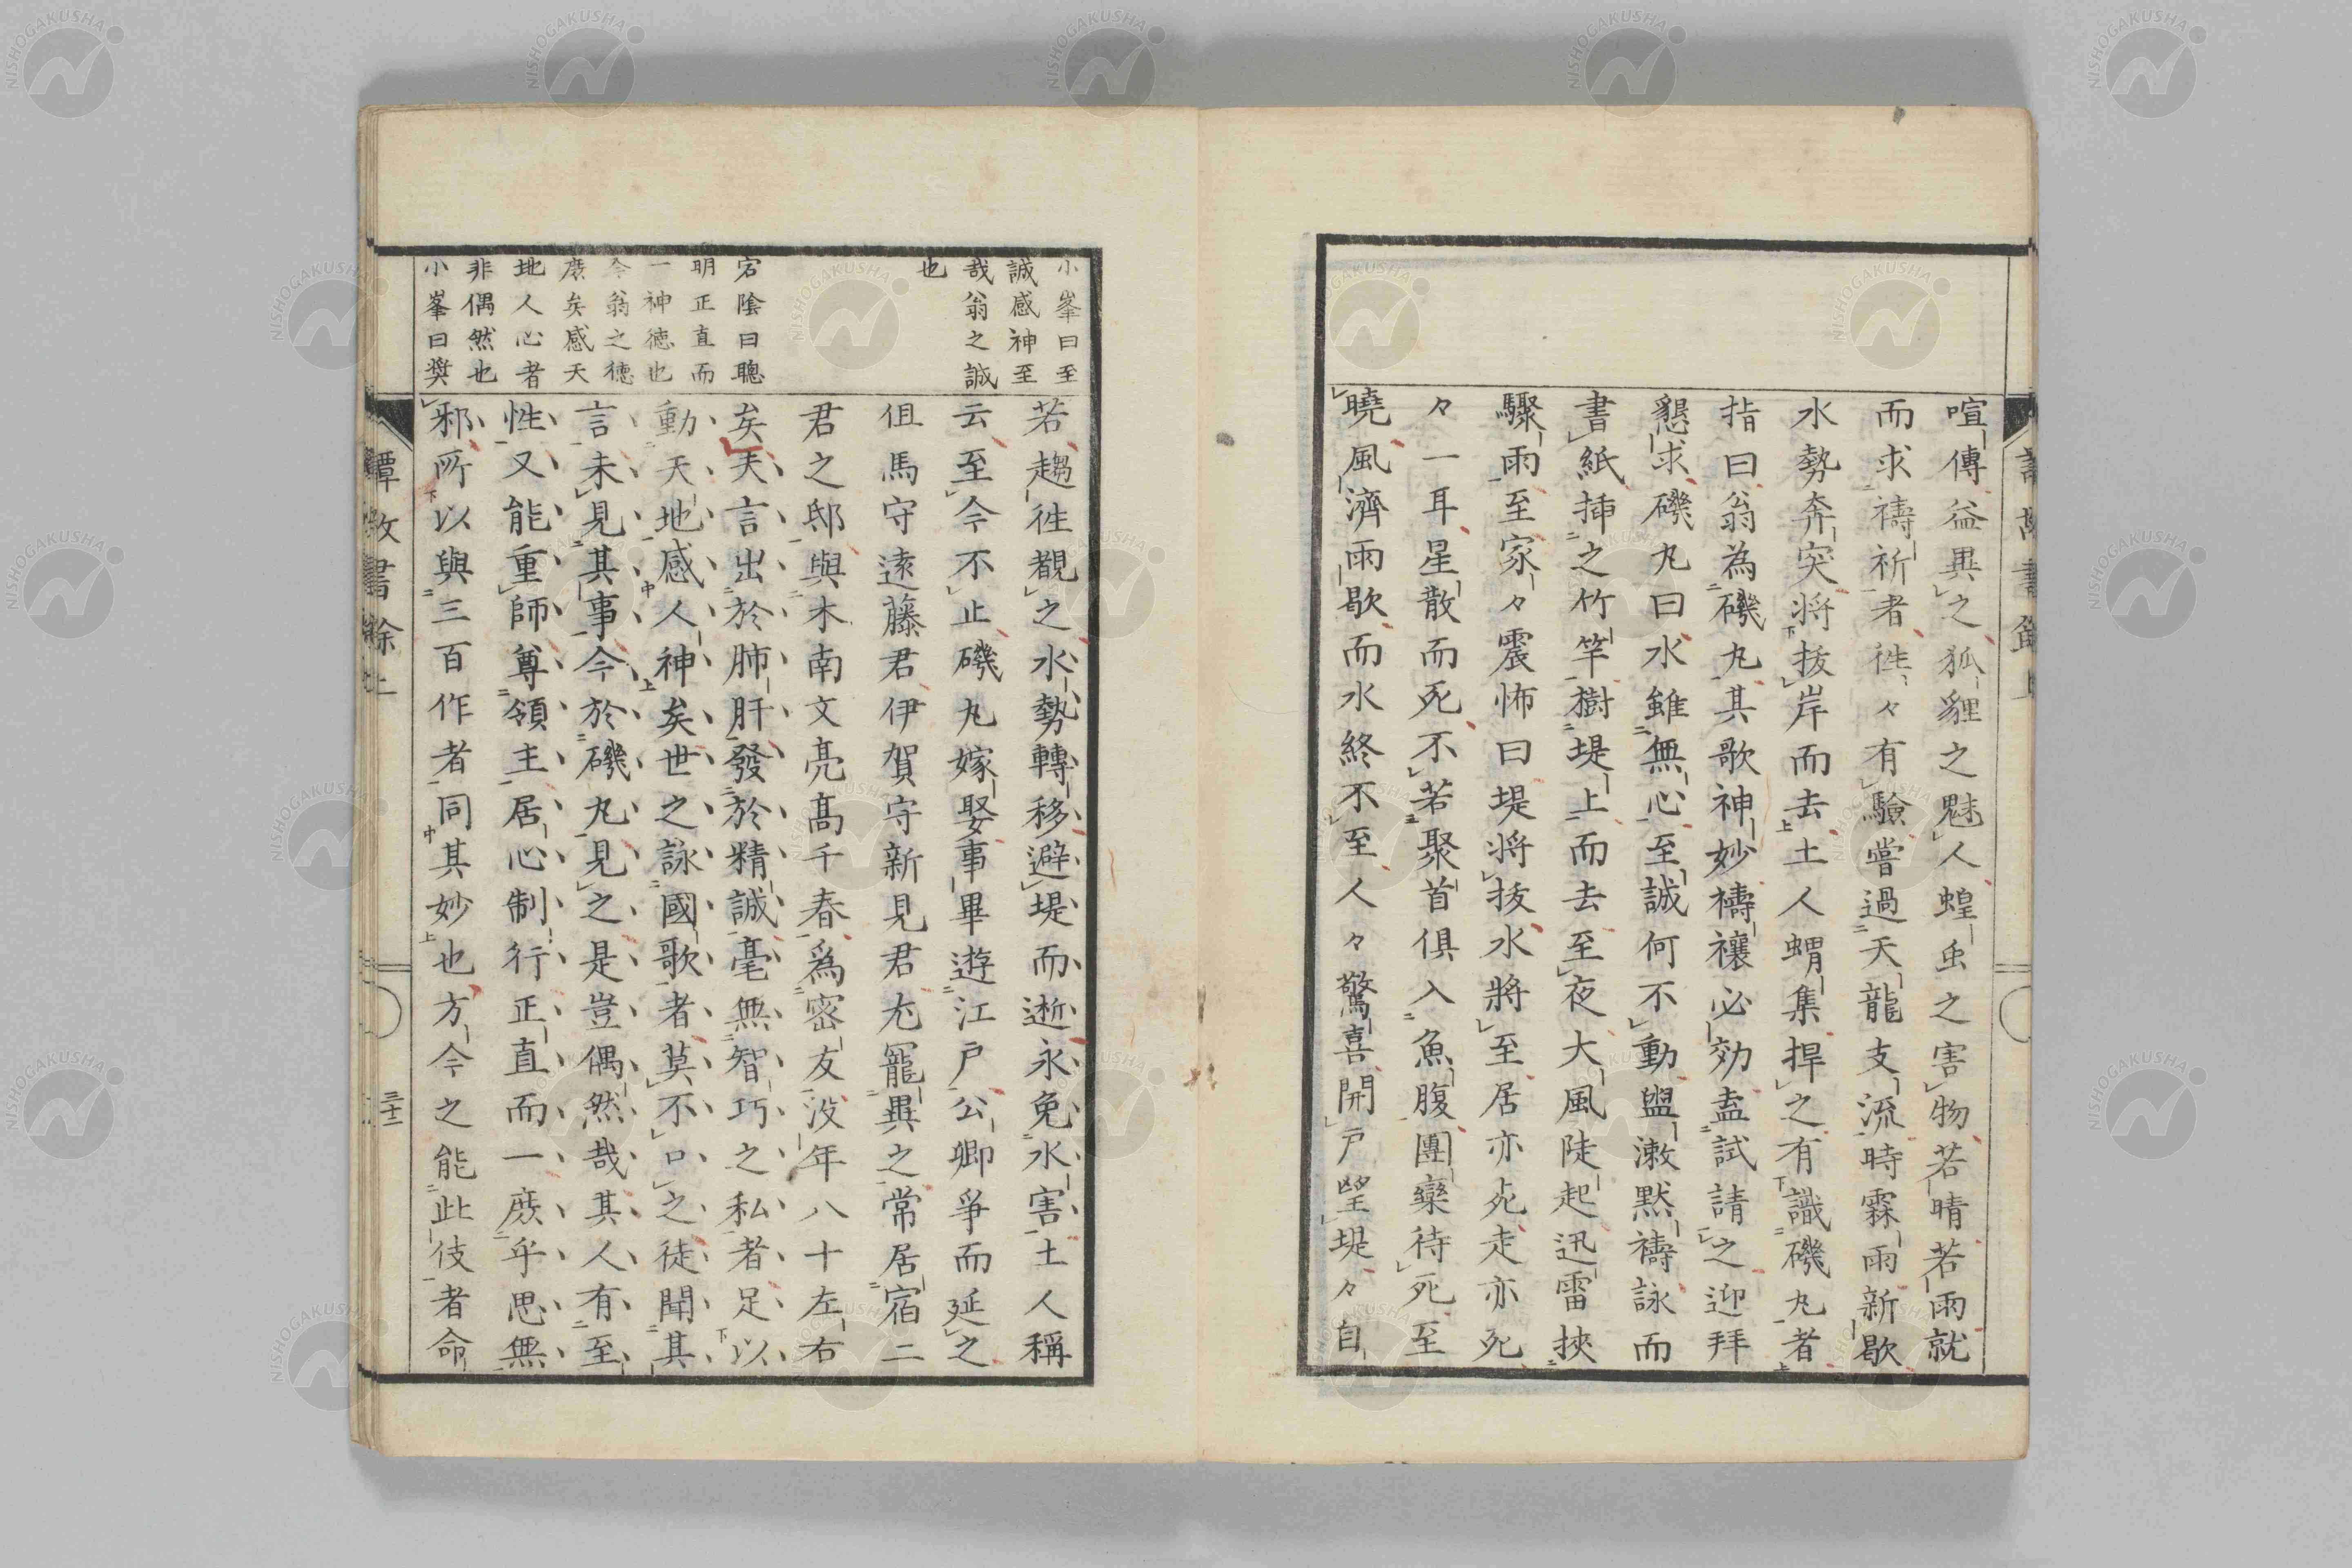 喧傳益異之狐貍之魅人蝗虫之害物若晴若雨就
而求禱祈者徃々有驗嘗過天龍支流時霖雨新歇
水勢奔突将抜岸而去土人蝟集捍之有識磯丸者
指曰翁為磯丸其歌神妙禱禳必効盍試請之迎拜
懇求磯丸曰水雖無心至誠何不動盥漱默禱詠而
書紙挿之竹竿樹堤上而去至夜大風陡起迅雷挾
驟雨至家々震怖曰堤将抜水將至居亦死走亦死
々一耳星散而死不若聚首俱入魚腹團欒待死至
曉風濟雨歇而水終不至人々驚喜開戸望堤々自
若趨徃觀之水勢轉移避堤而逝永免水害土人稱
云至今不止磯丸嫁娶事畢遊江戸公卿爭而延之
伹馬守遠藤君伊賀守新見君尤寵異之常居宿二
君之邸與木南文亮髙千春爲密友没年八十左右
矣夫言出於肺肝發於精誠毫無智巧之私者足以
動天地感人神矣世之詠國歌者莫不口之徒聞其
言未見其事今於磯丸見之是豈偶然哉其人有至
性又能重師尊領主居心制行正直而一庻乎思無
邪所以與三百作者同其妙也方今之能此伎者命
小峯曰至
誠感神至
哉翁之誠
也
宕陰曰聰
明正直而
一神徳也
今翁之徳
庻矣感天
地人心者
非偶然也
小峯曰奬
譚故書餘上
三十二
NISHOGAKUSHA